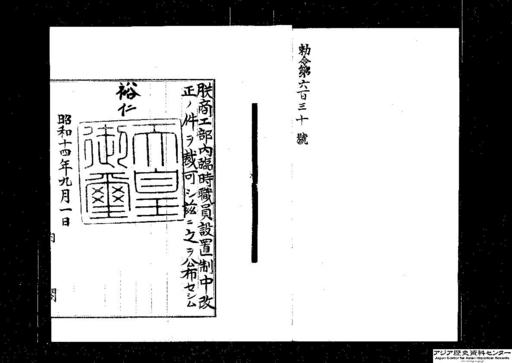 勅令第六百三十號
朕商工部內臨時職員設置制中改
正ノ件ヲ裁可シ茲ニ之ヲ公布セシム
裕仁
天皇
御璽
昭和十四年九月一日
内閣
アジア歴史資料センター
Japan Center for Asian Historical Records